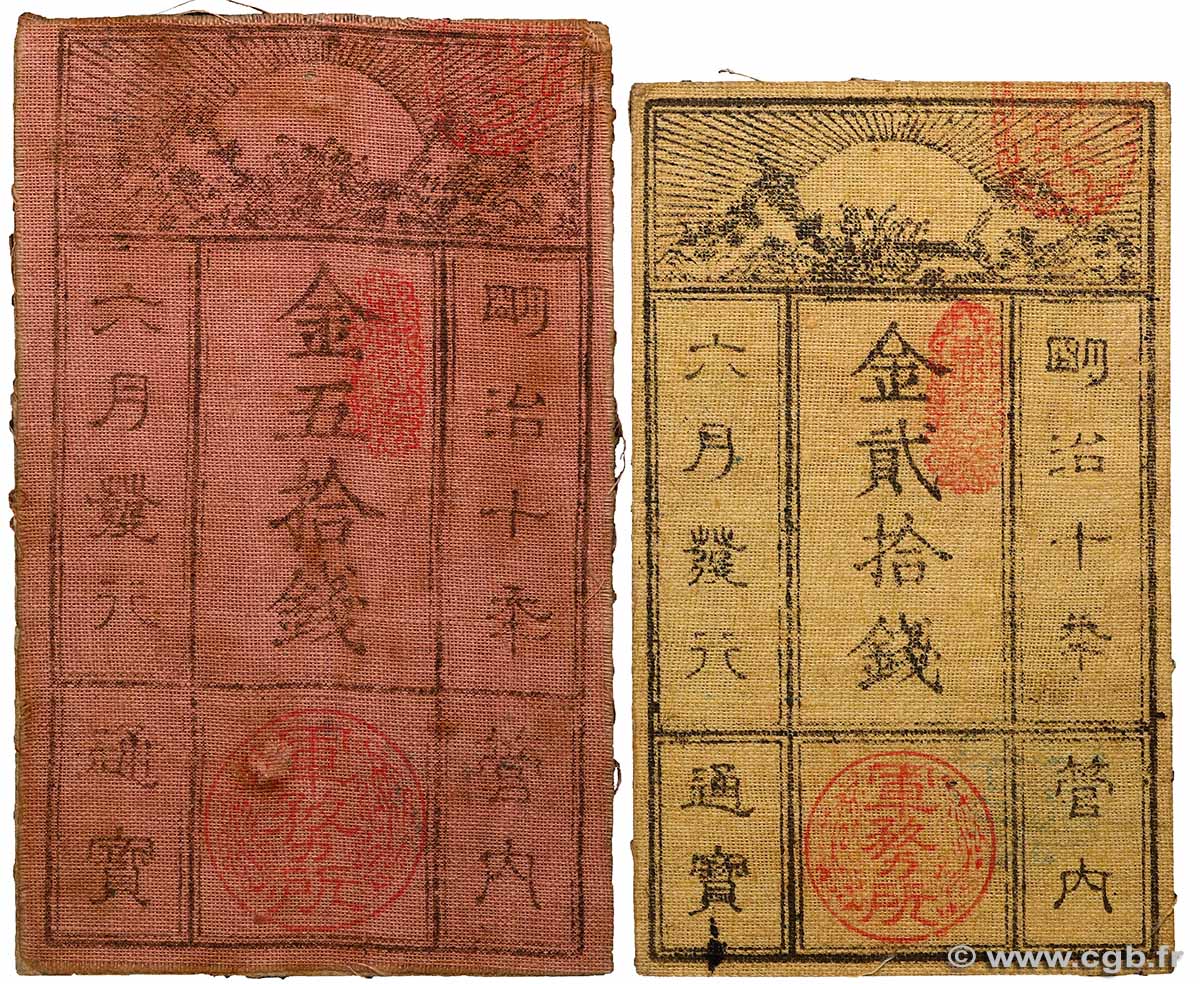 明治十年
金五拾錢
六月發行
管内
軍務所
通寶
明治十年
金貳拾錢
六月發行
管内
軍務所
通寶
© www.cgb.fr